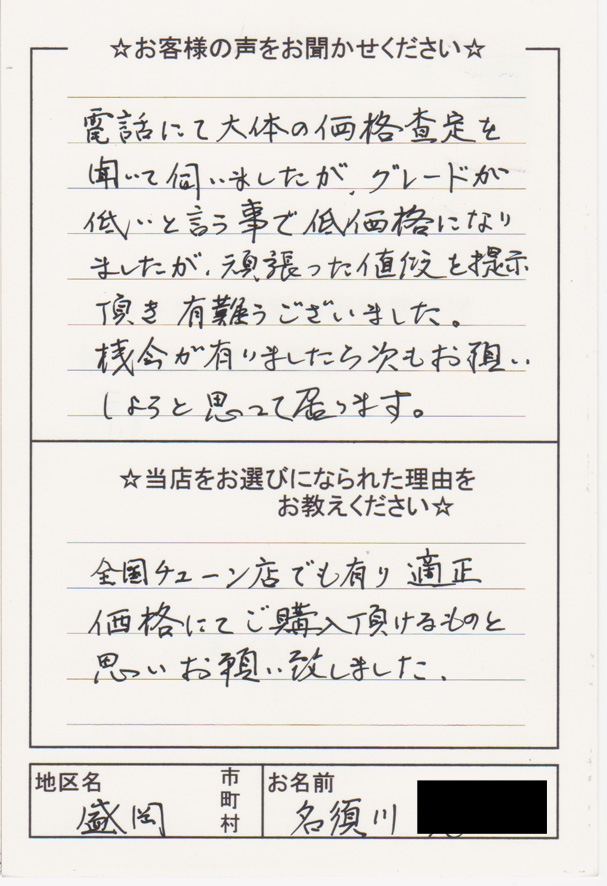 ☆お客様の声をお聞かせください☆
電話にて大体の価格査定を
聞いて伺いましたが、グレードが
低いと言う事で低価格になり
ましたが、頑張った値段を提示
頂き有難うございました。
機会が有りましたら次もお願い
しようと思って居ります。
☆当店をお選びになられた理由を
お教えください☆
全国チェーン店でも有り適正
価格にてご購入頂けるものと
思いお願い致しました。
地区名
盛岡
市町村
お名前
名須川